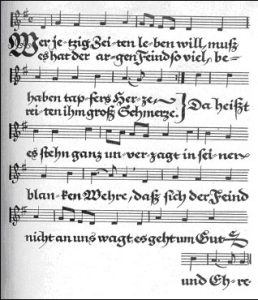 Wer je-tzig Zei-ten le-ben will, muß
es hat der ar-gen Feind so viel, be-
haben tap-fers Her-ze.
rei-ten ihm groß Schmerze.
Da heißt
es stehn ganz un-ver-zagt in sei-ner
blan-ken Wehre, daß sich der Feind
nicht an uns wagt, es geht um Gut
und Eh-re